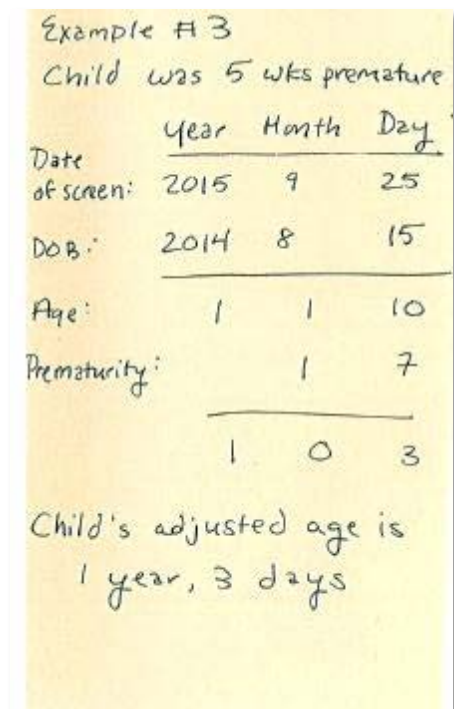 Example #3
Child was 5 wks premature
Year Month Day
Date
of screen: 2015 9 25
DOB: 2014 8 15
Age: 1 1 10
Prematurity: 1 7
1 0 3
Child's adjusted age is
1 year, 3 days